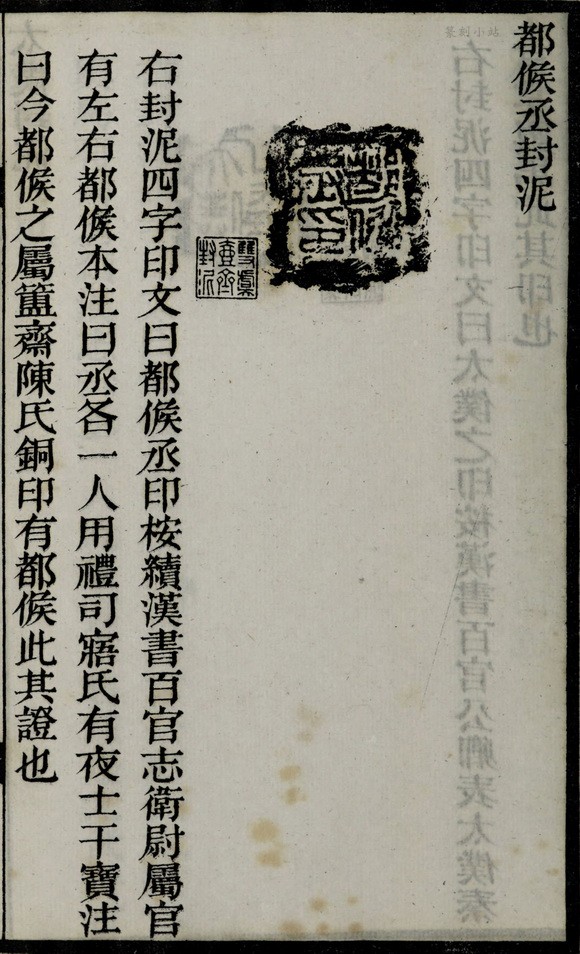 篆刻小站
都候丞封泥
都候丞印
雙虞壺齋封泥
右封泥四字印文曰都候丞印桉續漢書百官志衛尉屬官
有左右都候本注曰丞各一人用禮司寤氏有夜士干寶注
曰今都候之屬簠齋陳氏銅印有都候此其證也